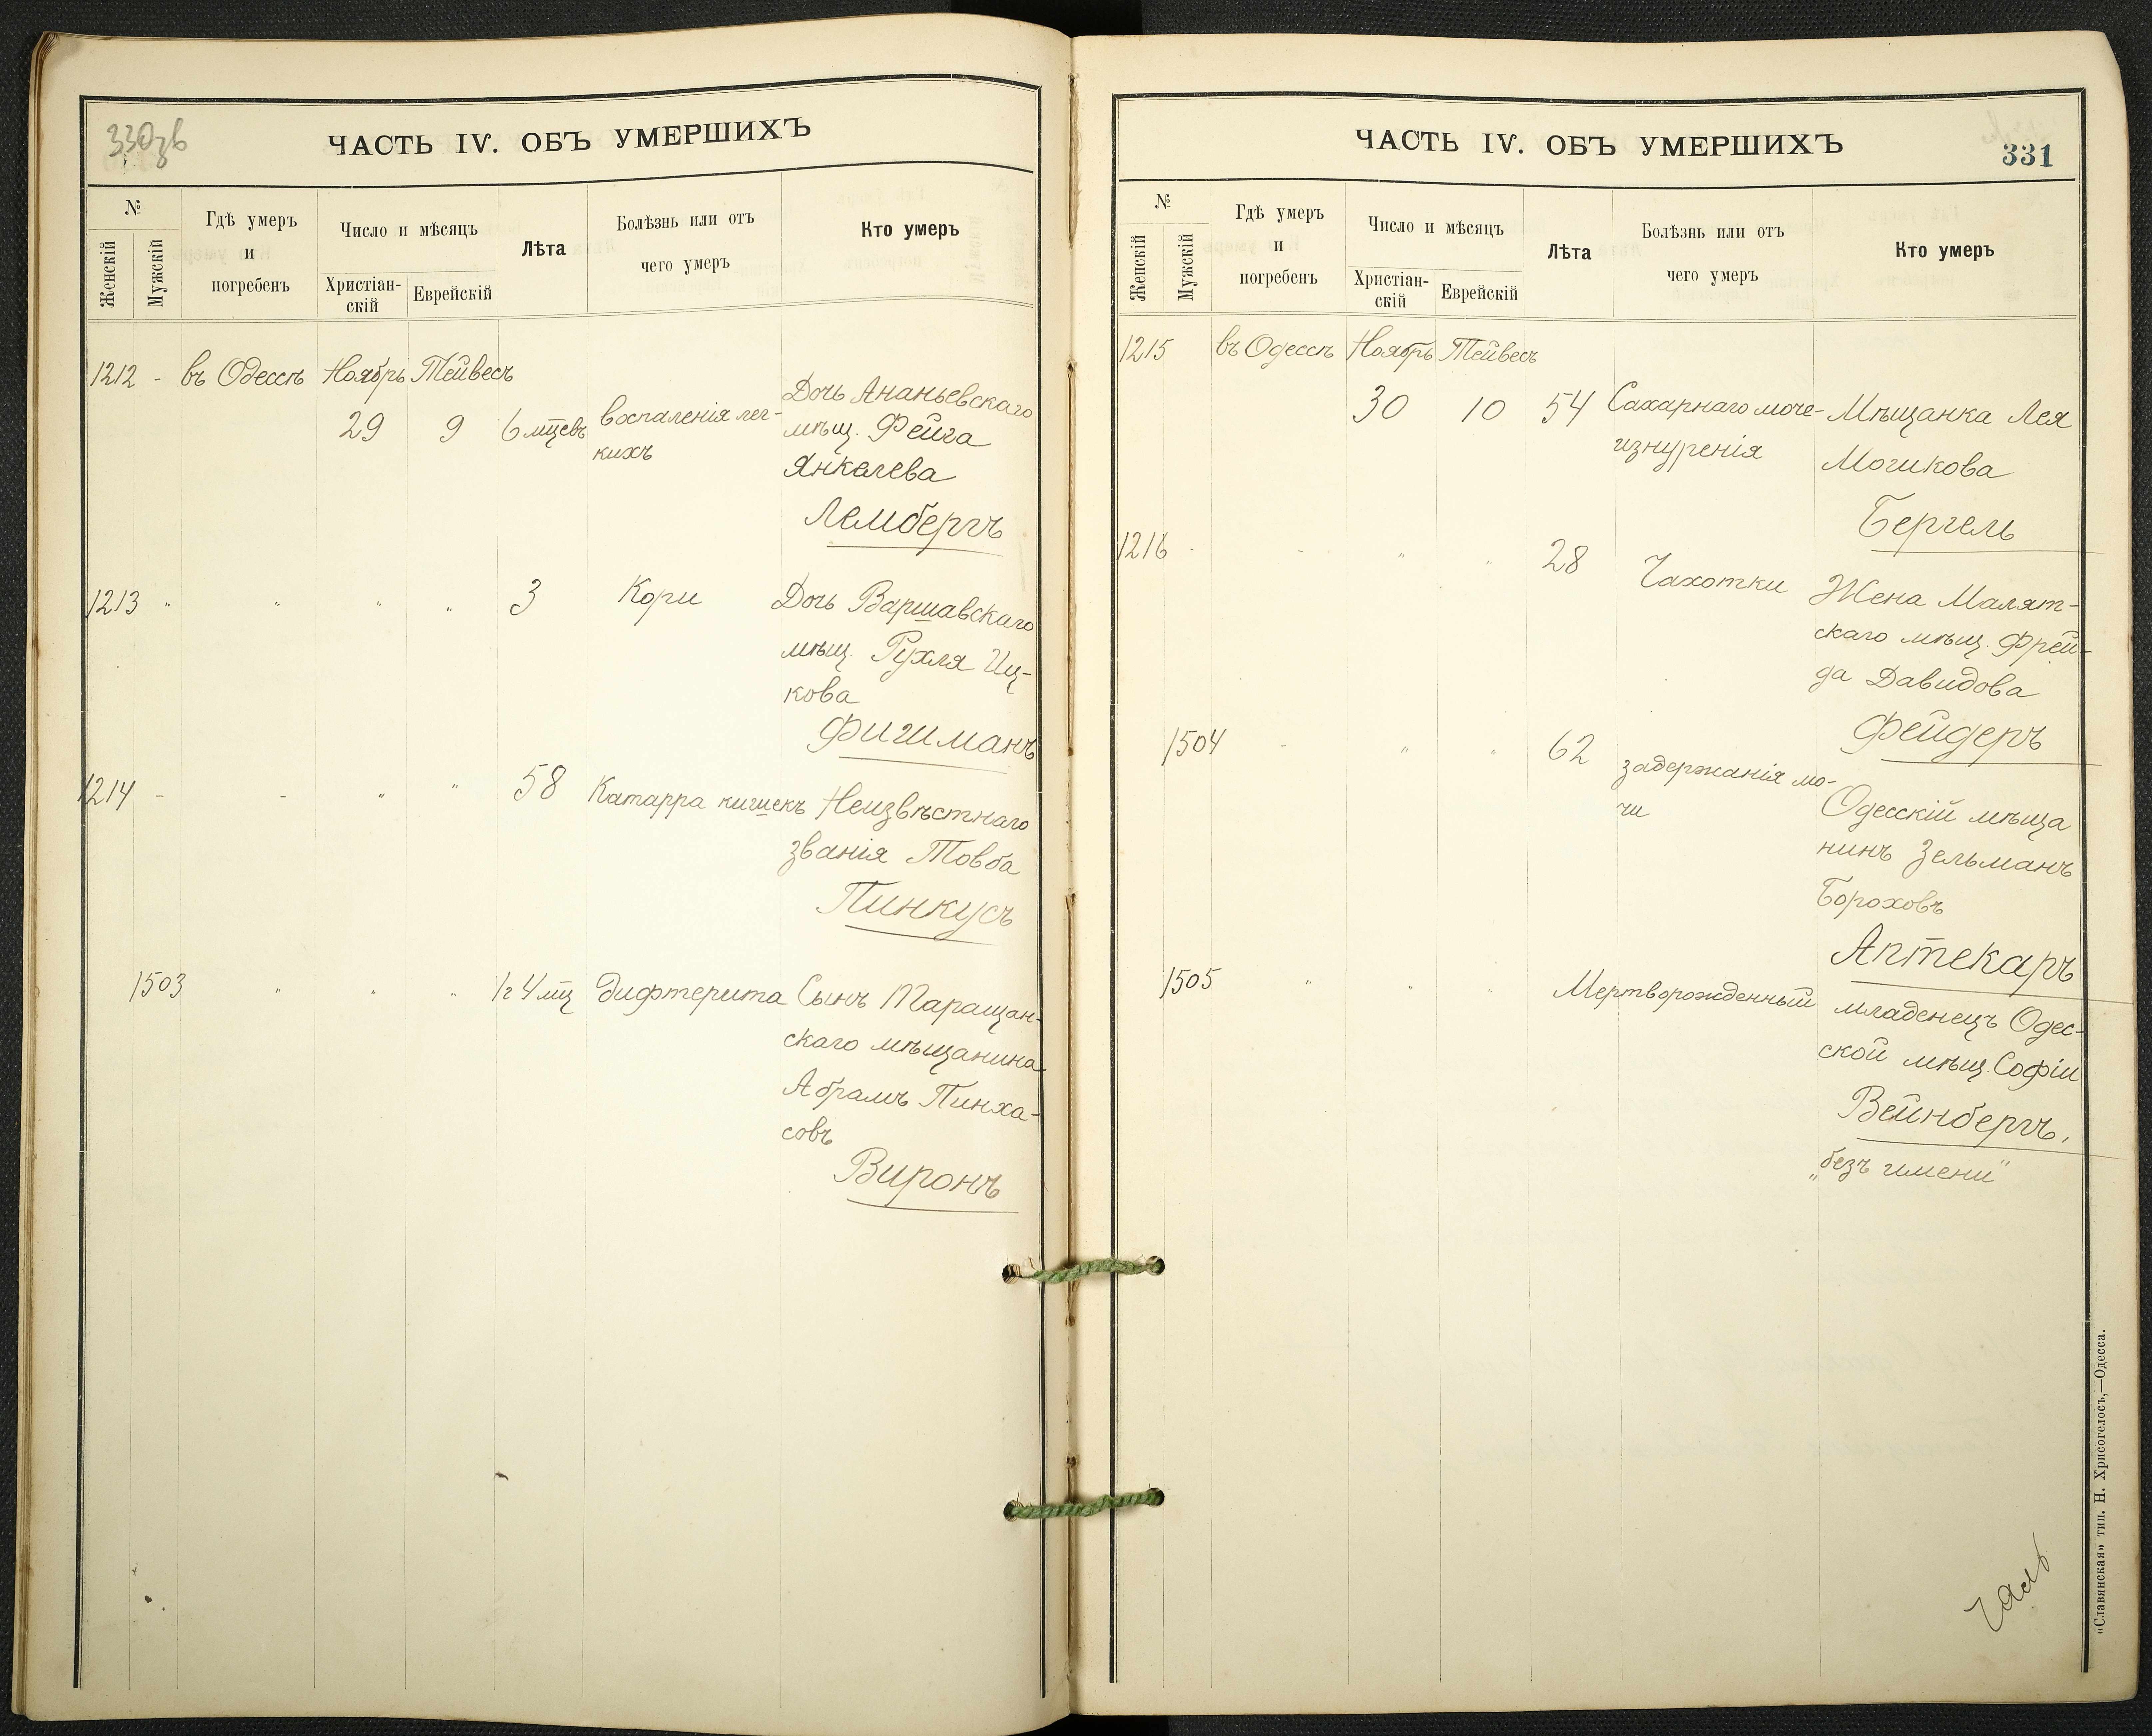 330 зв
ЧАСТЬ IV. ОБЪ УМЕРШИХЪ
№
Женскій
Мужскій
Гдѣ умеръ
и
погребенъ
Число и мѣсяцъ
Христіан-
скій
Еврейскій
Лѣта
Болѣзнь или отъ
чего умеръ
Кто умеръ
1212 - въ Одессѣ Ноябрь Тейвесъ
29 9 6 мцевъ воспаленія лег-
кихъ
Дочь Ананьевскаго
мѣщ. Фейга
Янкелева
Лембергъ
1213 " " " " 3 Кори Дочь Варшавскаго
мѣщ. Рухля Иц-
кова
Фишманъ
1214 - - " " 58 Катарра кишекъ Неизвѣстнаго
званія Товба
Пинкусъ
1503 " " " 1 г 4 мц Дифтерита Сынъ Таращан-
скаго мѣщанина
Абрамъ Пинха-
совъ
Виронъ
ЧАСТЬ IV. ОБЪ УМЕРШИХЪ
331
№
Женскій
Мужскій
Гдѣ умеръ
и
погребенъ
Число и мѣсяцъ
Христіан-
скій
Еврейскій
Лѣта
Болѣзнь или отъ
чего умеръ
Кто умеръ
1215 въ Одессѣ Ноябрь Тейвесъ
30 10 54 Сахарнаго моче-
изнуренія
Мѣщанка Лея
Мошкова
Бергель
1216 - - " " 28 Чахотки Жена Малят-
скаго мѣщ. Фрей-
да Давидова
Фейдеръ
1504 - " " 62 задержанія мо-
чи
Одесскій мѣща
нинъ Зельманъ
Бороховъ
Аптекаръ
1505 " " " Мертворожденный младенецъ Одес-
ской мѣщ. Софіи
Вейнбергъ,
„безъ имени"
«Славянская» тип. Н. Хрисогелосъ,—Одесса.